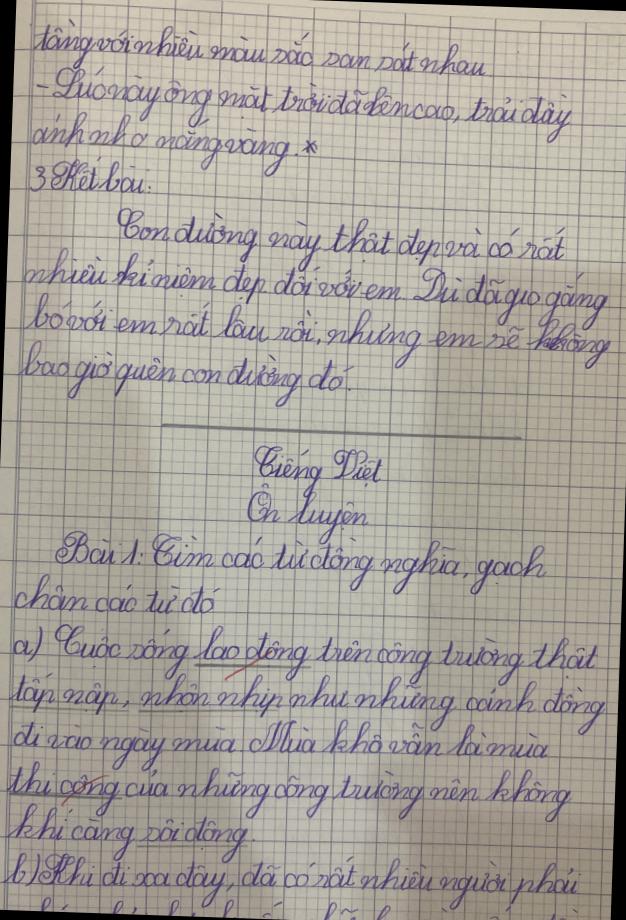 tầng với nhiều màu sắc san sát nhau
- Lúc này ông mặt trời đã lên cao, trải đầy
ánh nắng vàng.*
3 Kết bài:
Con đường này thật đẹp và có rất
nhiều kỉ niệm đẹp đối với em. Dù đã gắng
bó với em rất lâu rồi, nhưng em sẽ không
bao giờ quên con đường đó.
Tiếng Việt
Ôn luyện
Bài 1: Tìm các từ đồng nghĩa, gạch
chân các từ đó
a) Cuộc sống lao động trên công trường thật
tấp nập, nhôn nhịp như những cánh đồng
đi vào ngày mùa. Mùa khô vẫn là mùa
thi công của những công trường nên không
khí càng sôi động.
b) Khi đi xa đây, đã có rất nhiều người phải